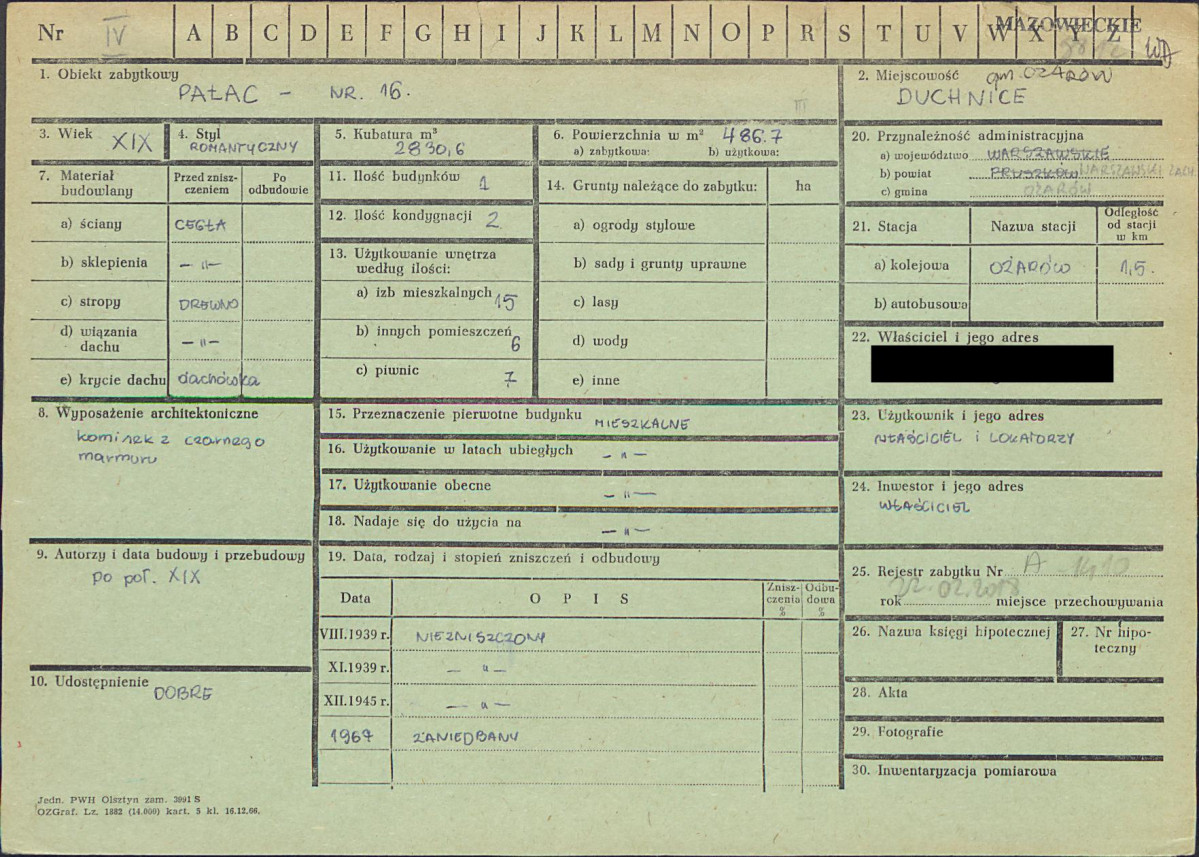 Nr IV A B C D E F G H I J K L M N O P R S T U V W X Y Z MAZOWIECKIE
1. Obiekt zabytkowy
PAŁAC - NR. 16.
III
2. Miejscowość gm. OŻARÓW
DUCHNICE
3. Wiek XIX
4. Styl
ROMANTYCZNY
5. Kubatura m³
2830,6
6. Powierzchnia w m² 486.7
a) zabytkowa: b) użytkowa:
20. Przynależność administracyjna
a) województwo WARSZAWSKIE
b) powiat PRUSZKÓW WARSZAWSKI ZACH
c) gmina OŻARÓW
7. Materiał budowlany
Przed zniszczeniem
Po odbudowie
a) ściany CEGŁA
b) sklepienia — „ —
c) stropy DREWNO
d) wiązania dachu — „ —
e) krycie dachu dachówka
11. Ilość budynków 1
12. Ilość kondygnacji 2
13. Użytkowanie wnętrza
według ilości:
a) izb mieszkalnych 15
b) innych pomieszczeń 6
c) piwnic 7
14. Grunty należące do zabytku: ha
a) ogrody stylowe
b) sady i grunty uprawne
c) lasy
d) wody
e) inne
21. Stacja Nazwa stacji Odległość od stacji w km
a) kolejowa OŻARÓW 1,5.
b) autobusowa
22. Właściciel i jego adres
8. Wyposażenie architektoniczne
kominek z czarnego
marmuru
15. Przeznaczenie pierwotne budynku MIESZKALNE
16. Użytkowanie w latach ubiegłych — „ —
17. Użytkowanie obecne — „ —
18. Nadaje się do użycia na — „ —
23. Użytkownik i jego adres
WŁAŚCICIEL i LOKATORZY
24. Inwestor i jego adres
WŁAŚCICIEL
9. Autorzy i data budowy i przebudowy
po poł. XIX
19. Data, rodzaj i stopień zniszczeń i odbudowy
Data O P I S Zniszczenia % Odbudowa %
VIII.1939 r. NIEZNISZCZONY
XI.1939 r. — „ —
XII.1945 r. — „ —
1967 ZANIEDBANY
25. Rejestr zabytku Nr A - 1410
22.02.2018
rok miejsce przechowywania
26. Nazwa księgi hipotecznej
27. Nr hipoteczny
28. Akta
29. Fotografie
30. Inwentaryzacja pomiarowa
10. Udostępnienie DOBRE
Jedn. PWH Olsztyn zam. 3991 S
OZGraf. Lz. 1882 (14.000) kart. 5 kl. 16.12.66.